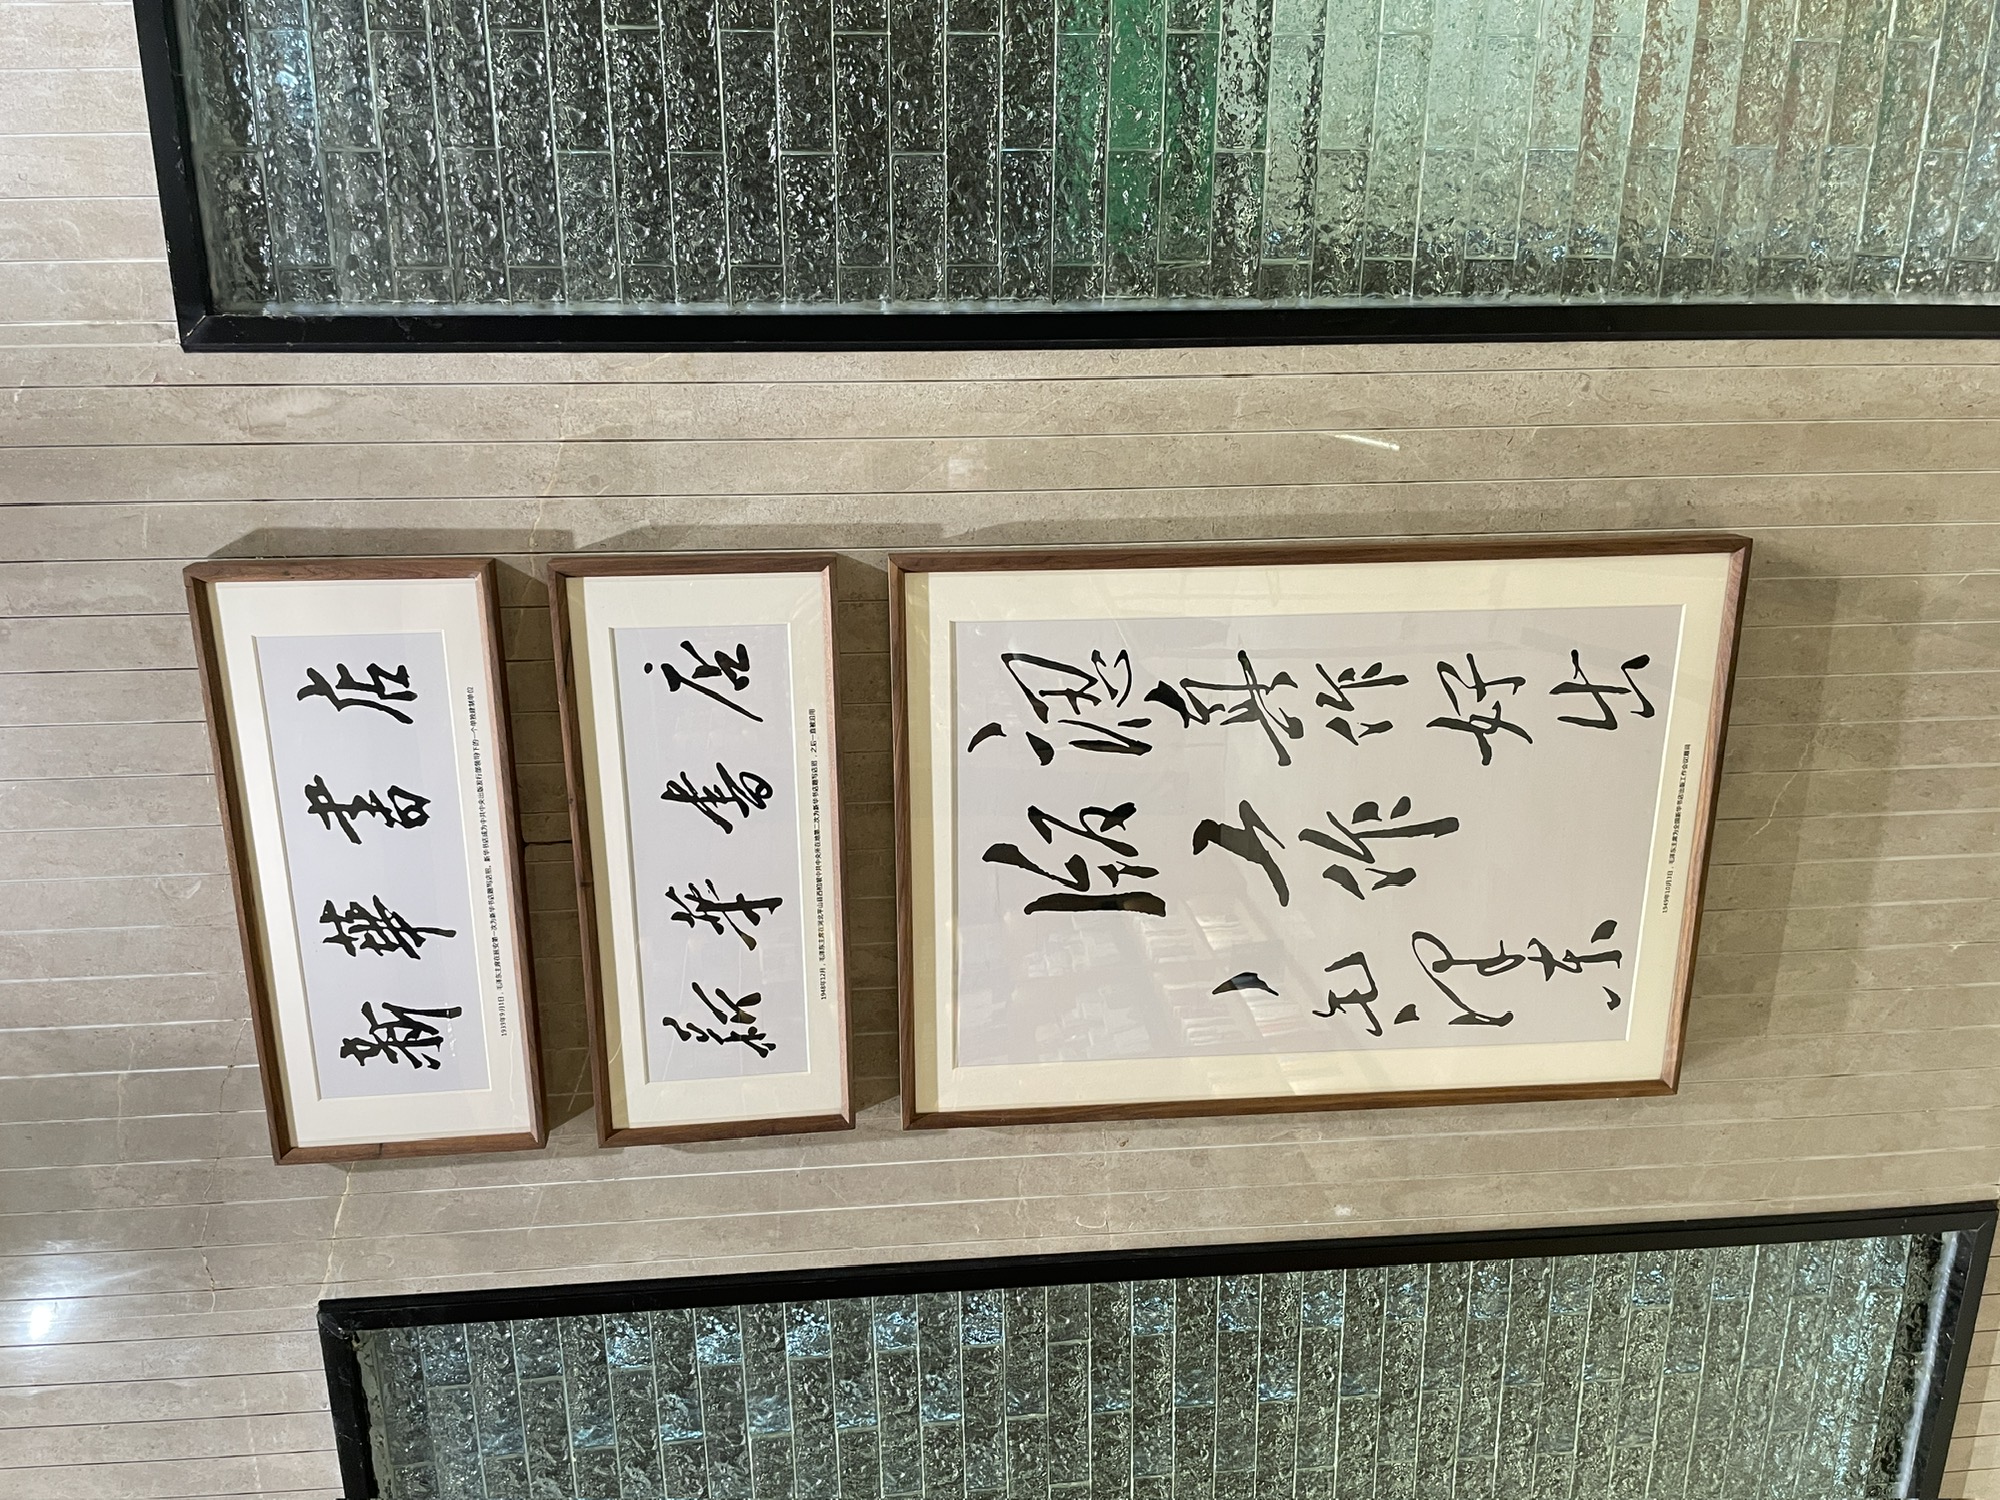 新華書店
1939年9月1日，毛泽东主席在延安第一次为新华书店题写店招，新华书店成为中共中央出版发行部领导下的一个单独建制单位
新華書店
1948年12月，毛泽东主席在河北平山县西柏坡中共中央所在地第二次为新华书店题写店招，之后一直被沿用
認真作好出
版工作
毛澤東
1949年10月3日，毛泽东主席为全国新华书店出版工作会议题词